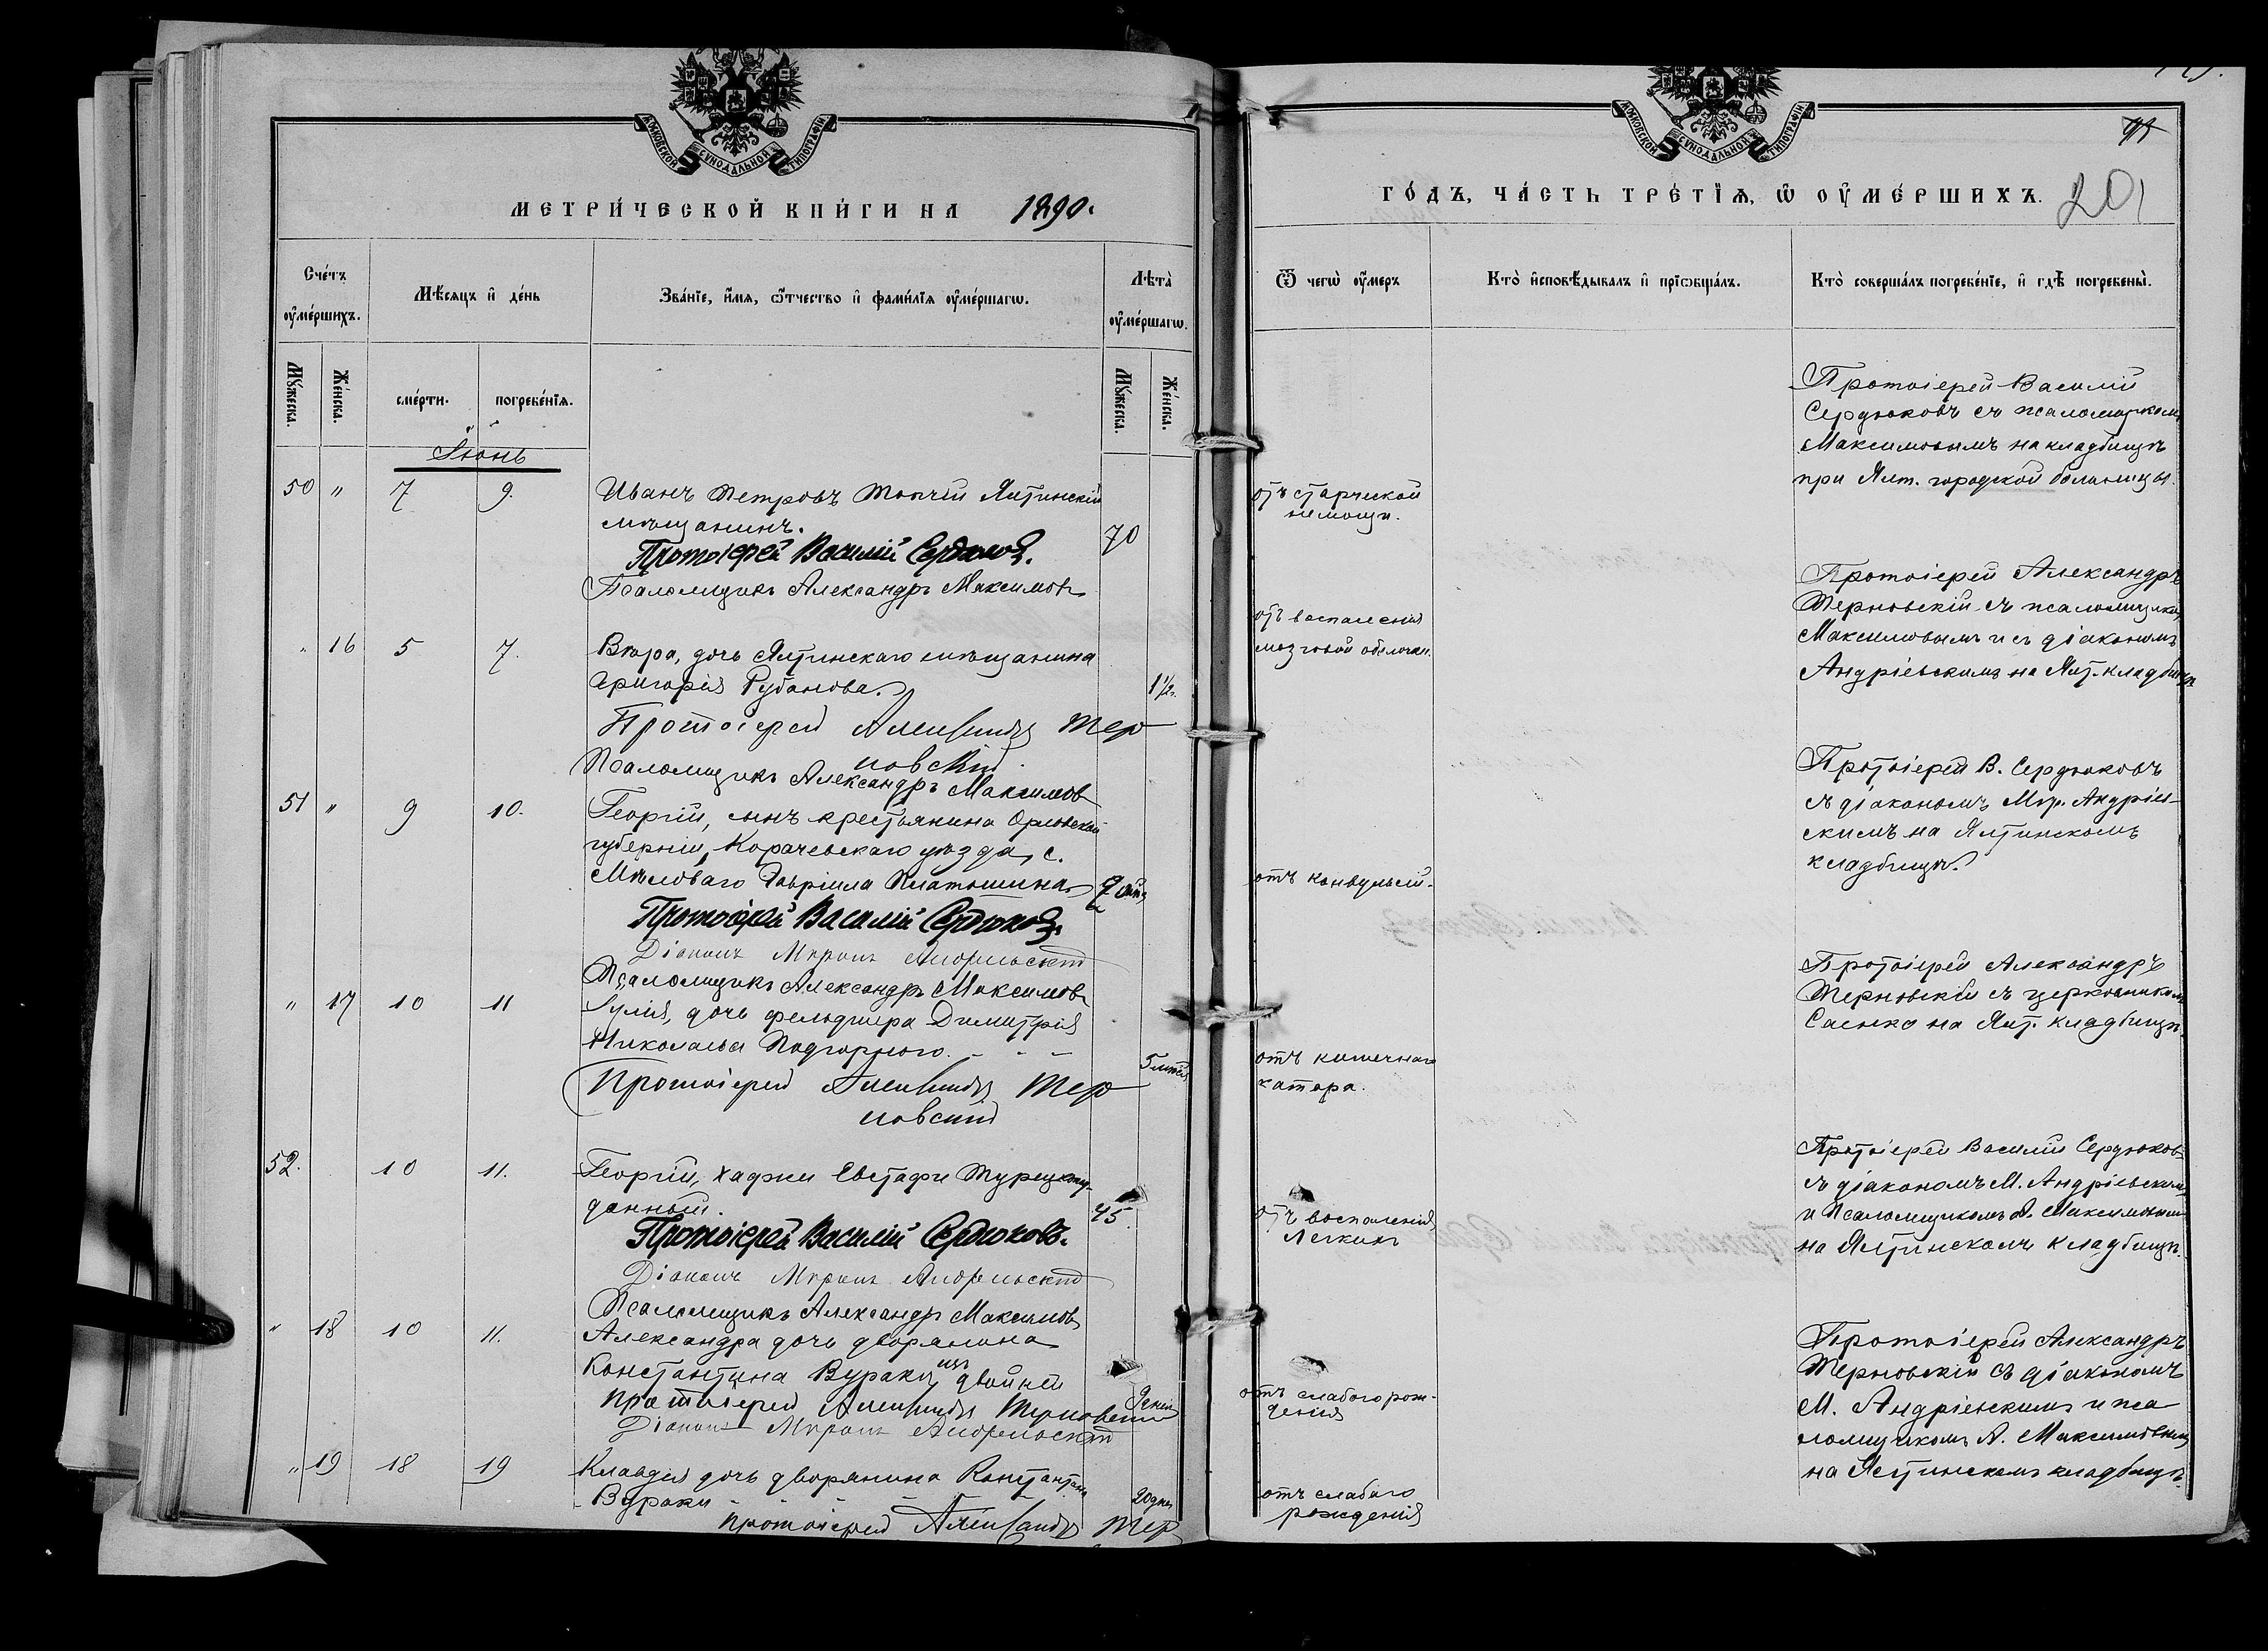 МОСКОВСКОЙ СѴНОДАЛЬНОЙ ТИПОГРАФІИ
МЕТРИ́ЧЕСКОЙ КНИ́ГИ НА 1890.
Сче́тъ ᲂу҆ме́ршихъ.
Мѣ́сяцъ и҆ де́нь
Зва́нїе, и҆́мя, ѻ҆́тчество и҆ фами́лїя ᲂу҆ме́ршагѡ.
Лѣта̀ ᲂу҆ме́ршагѡ.
Мꙋ́жеска.
Же́нска.
сме́рти.
погребе́нїя.
Мꙋ́жеска.
Же́нска.
Іюнь
50 " 7 9. Иванъ Петровъ Топчій Ялтинскій
мѣщанинъ. 70
Протоіерей Василій Сердюковъ.
Псаломщикъ Александръ Максимовъ
" 16 5 7. Вѣра, дочь Ялтинскаго мѣщанина
Григорія Рубанова. 1½
Протоіерей Александръ Тер
новскій
Псаломщикъ Александръ Максимовъ
51 " 9 10. Георгій, сынъ крестьянина Орловской
губерніи, Карачевскаго уѣзда, с.
Мѣловаго Гавріила
Протоіерей Василій Сердюковъ.
Діаконъ Миронъ Андріевскій
Псаломщикъ Александръ Максимовъ
" 17 10 11 Іулія, дочь фельдшера Димитрія
Николаева Подгорнаго. - - -
Протоіерей Александръ Тер
новскій
52. 10 11. Георгій, Хаджи Евстафи Турецкоп-
данный. 45.
Протоіерей Василій Сердюковъ.
Діаконъ Миронъ Андріевскій
Псаломщикъ Александръ Максимовъ
" 18 10 11. Александра дочь дворянина
Константина Вураки, изъ двойней
Протоіерей Александръ Терновскій
Діаконъ Миронъ Андріевскій
" 19 18 19 Клавдія дочь дворянина Константина
Вураки - - - 20 дней
Протоіерей Александръ Тер
МОСКОВСКОЙ СѴНОДАЛЬНОЙ ТИПОГРАФІИ
ГО́ДЪ, ЧА́СТЬ ТРЕ́ТЇѦ, Ѡ҆ ОУ҆МЕ́РШИХЪ. 201
Ѿ чегѡ̀ ᲂу҆́меръ
Кто̀ и҆сповѣ́дывалъ и҆ прїѡбща́лъ.
Кто̀ соверша́лъ погребе́нїе, и҆ гдѣ̀ погребены̀.
Протоіерей Василій
Сердюковъ съ псаломщикомъ
Максимовымъ на кладбищѣ
при Ялт. городской больницѣ.
отъ старческой
немощи.
Протоіерей Александръ
Терновскій съ псаломщикомъ
Максимовымъ и съ діакономъ
Андріевскимъ на Ялт. кладбищѣ
отъ воспаленія
мозговой оболочки.
Протоіерей В. Сердюковъ
съ діакономъ Мир. Андріев-
скимъ на Ялтинскомъ
кладбищѣ.
отъ конвульсій.
Протоіерей Александръ
Терновскій съ церковникомъ
Саенко на Ялт. кладбищѣ.
отъ кишечнаго
катара.
Протоіерей Василій Сердюковъ
съ діакономъ М. Андріевскимъ
и Псаломщикомъ А. Максимовымъ
на Ялтинскомъ кладбищѣ.
отъ воспаленія
легкихъ
Протоіерей Александръ
Терновскій съ діакономъ
М. Андріевскимъ и пса
ломщикомъ А. Максимовымъ
на Ялтинскомъ кладбищѣ.
отъ слабаго рож-
денія
отъ слабаго
рожденія